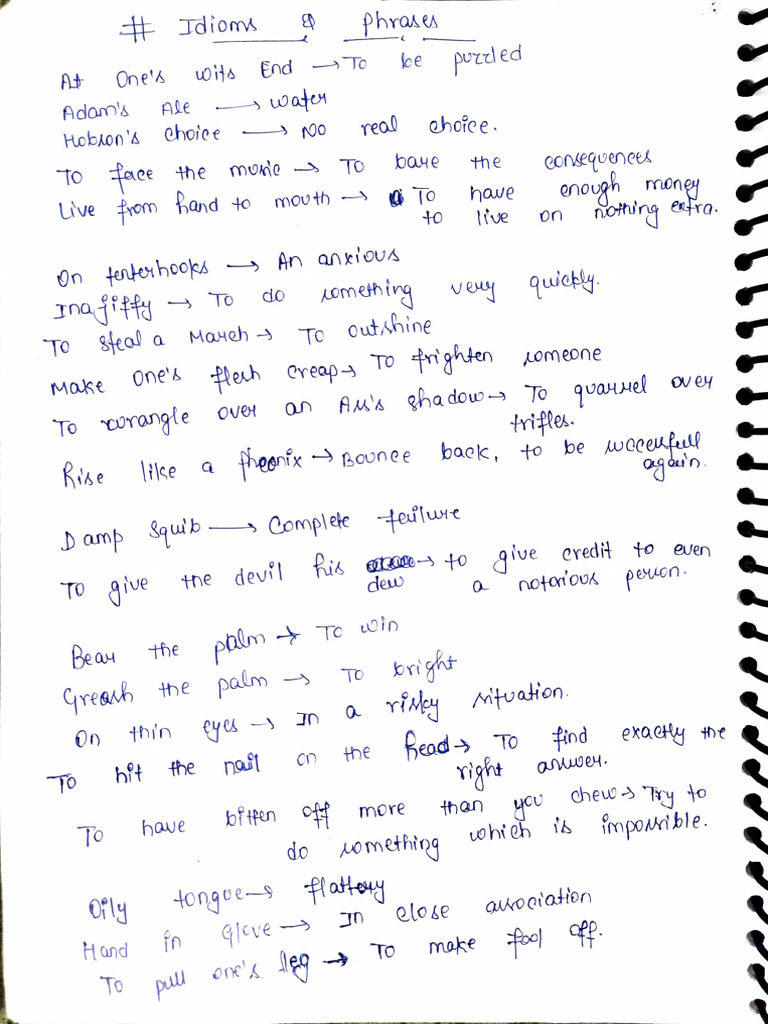 # Idioms & Phrases
At One's wits End → To be puzzled
Adam's Ale → water
Hobson's choice → No real choice.
To face the music → To bare the consequences
Live from hand to mouth → To have enough money
to live on nothing extra.
On tenterhooks → An anxious
In a jiffy → To do something very quickly.
To steal a March → To outshine
Make one's flesh creap → To frighten someone
To wrangle over an Ass's shadow → To quarrel over
trifles.
Rise like a pheonix → Bounce back, to be successfull
again.
Damp squib → Complete failure
To give the devil his → to give credit to even
dew a notorious person.
Bear the palm → To win
Greash the palm → To bright
On thin eyes → In a risky situation.
To hit the nail on the head → To find exactly the
right answer.
To have bitten off more than you chew → Try to
do something which is impossible.
Oily tongue → flattery
Hand in Glove → In close association
To pull one's leg → To make fool off.